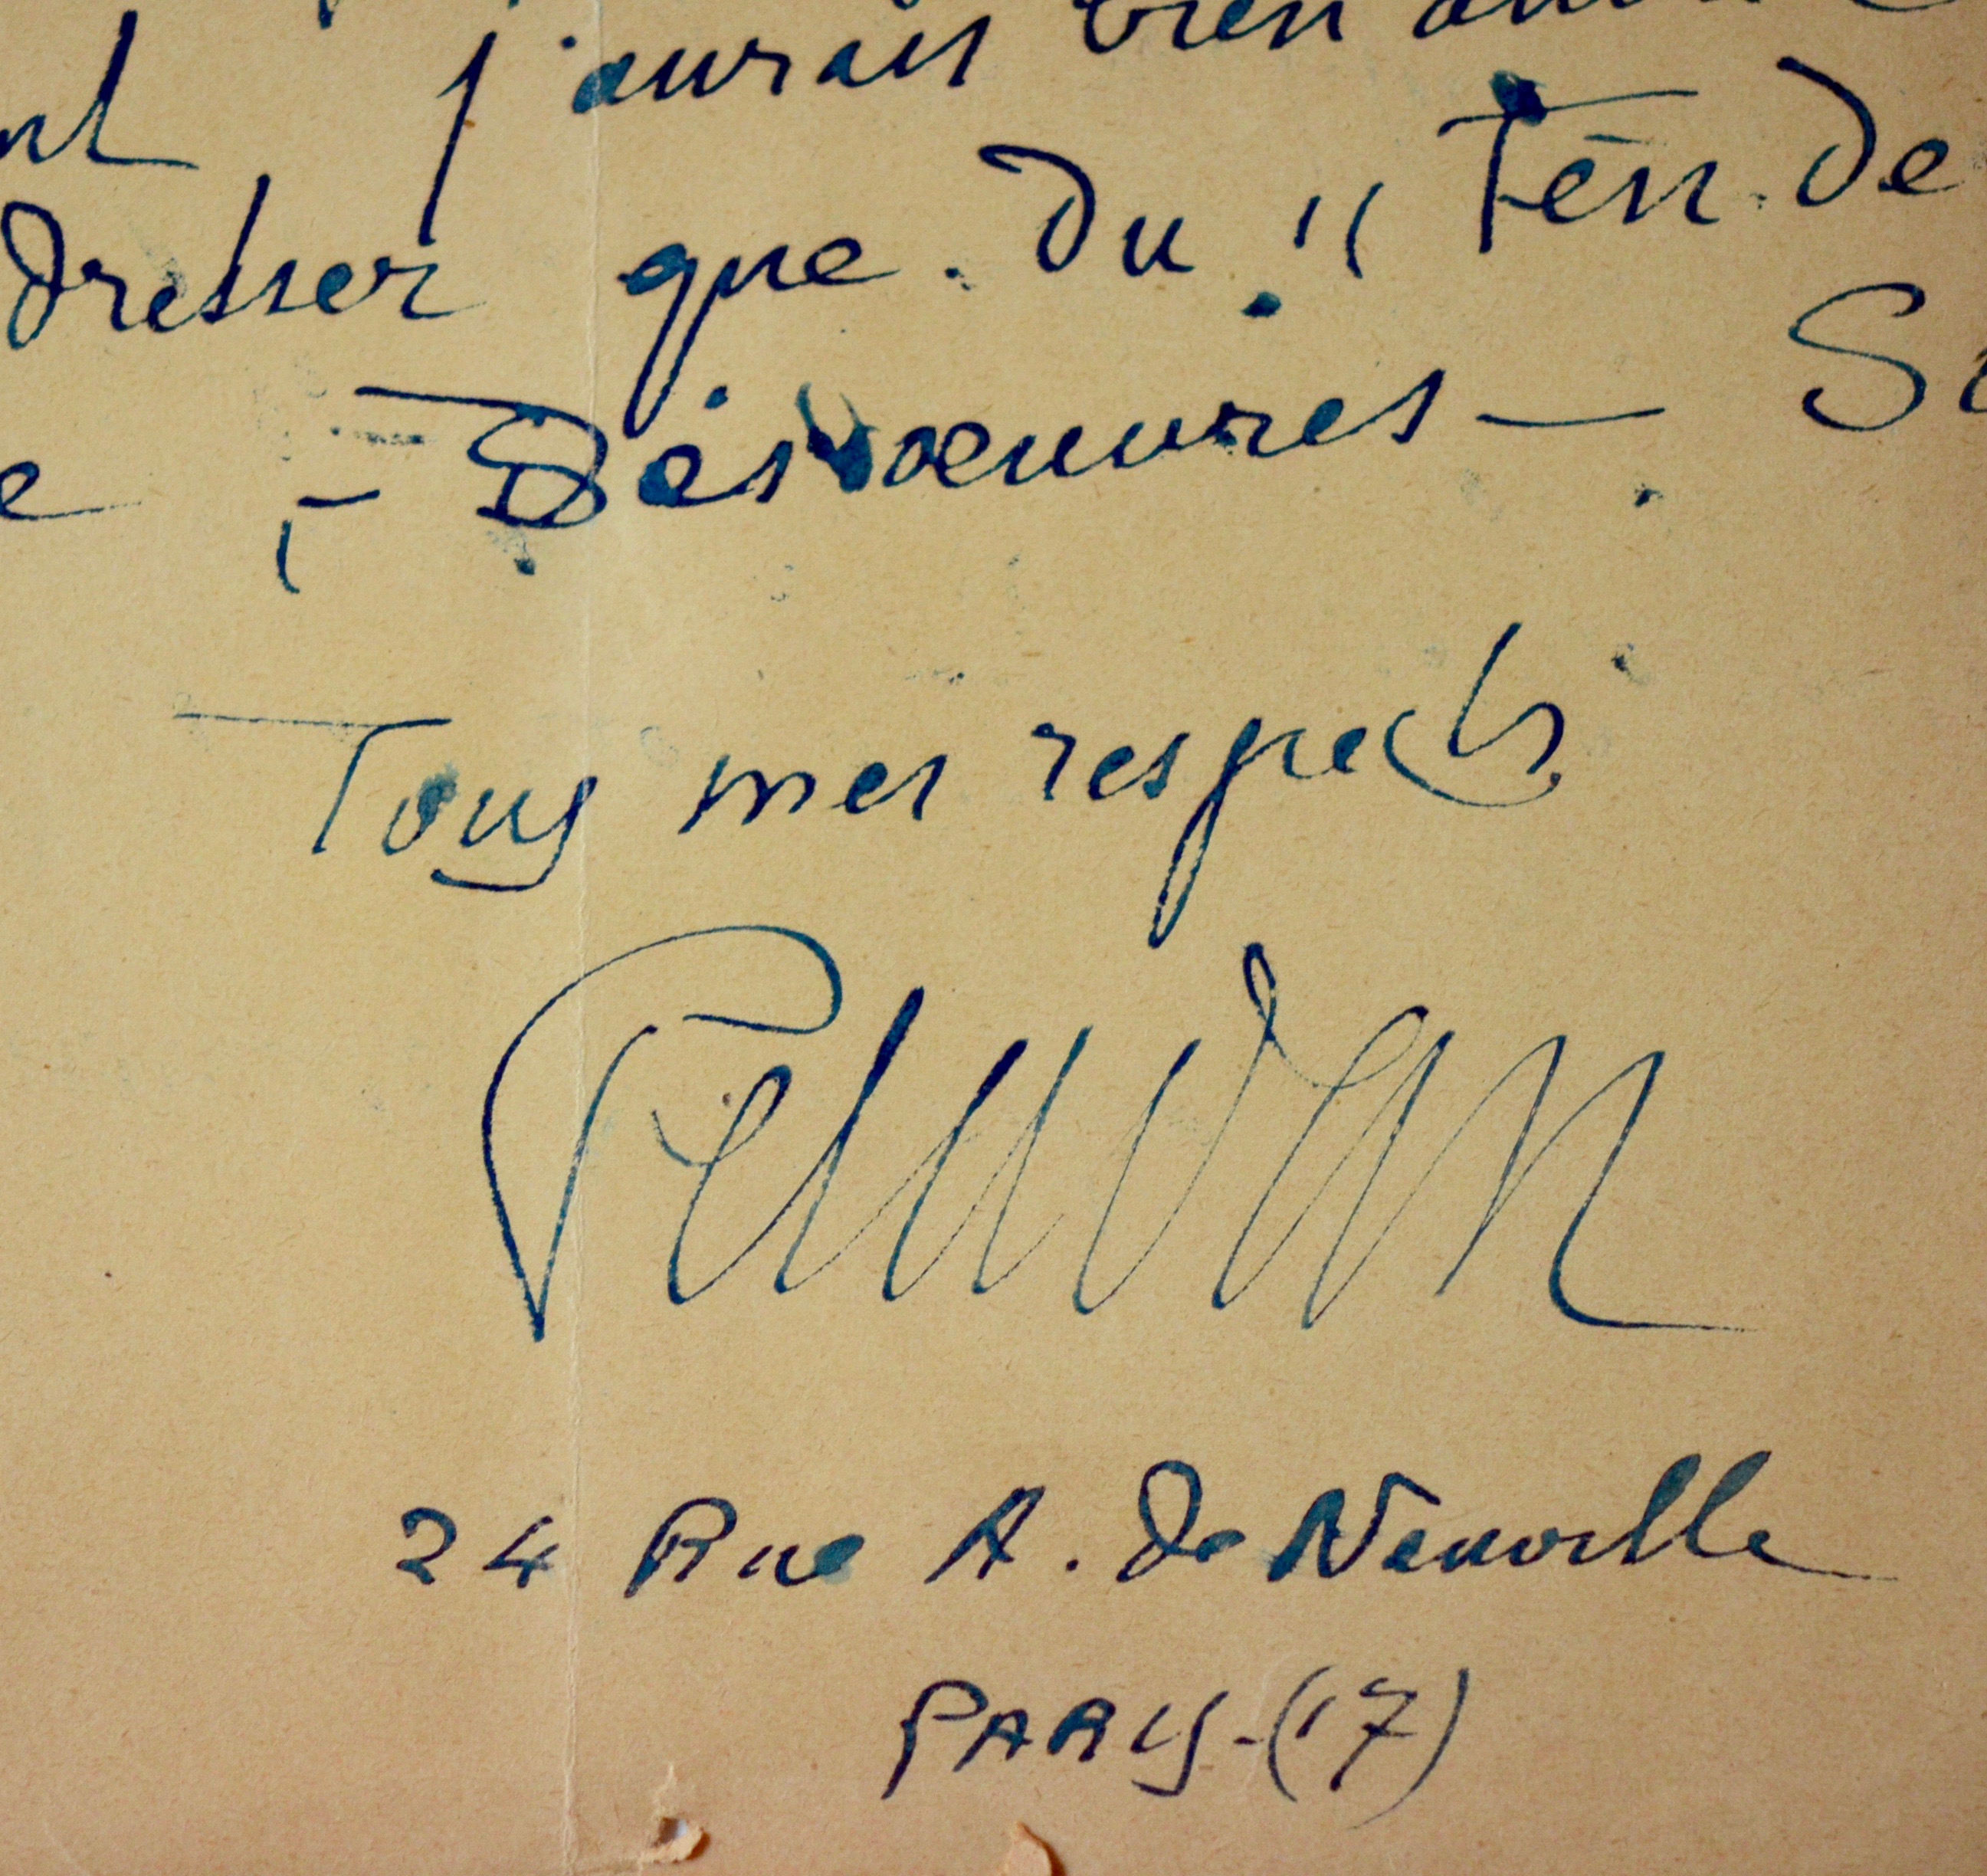 j'aurais bien
dresser que du " Ten de
- Désoeuvres —
Tous mes respects
24 Rue A. de Neuville
PARIS - (17)